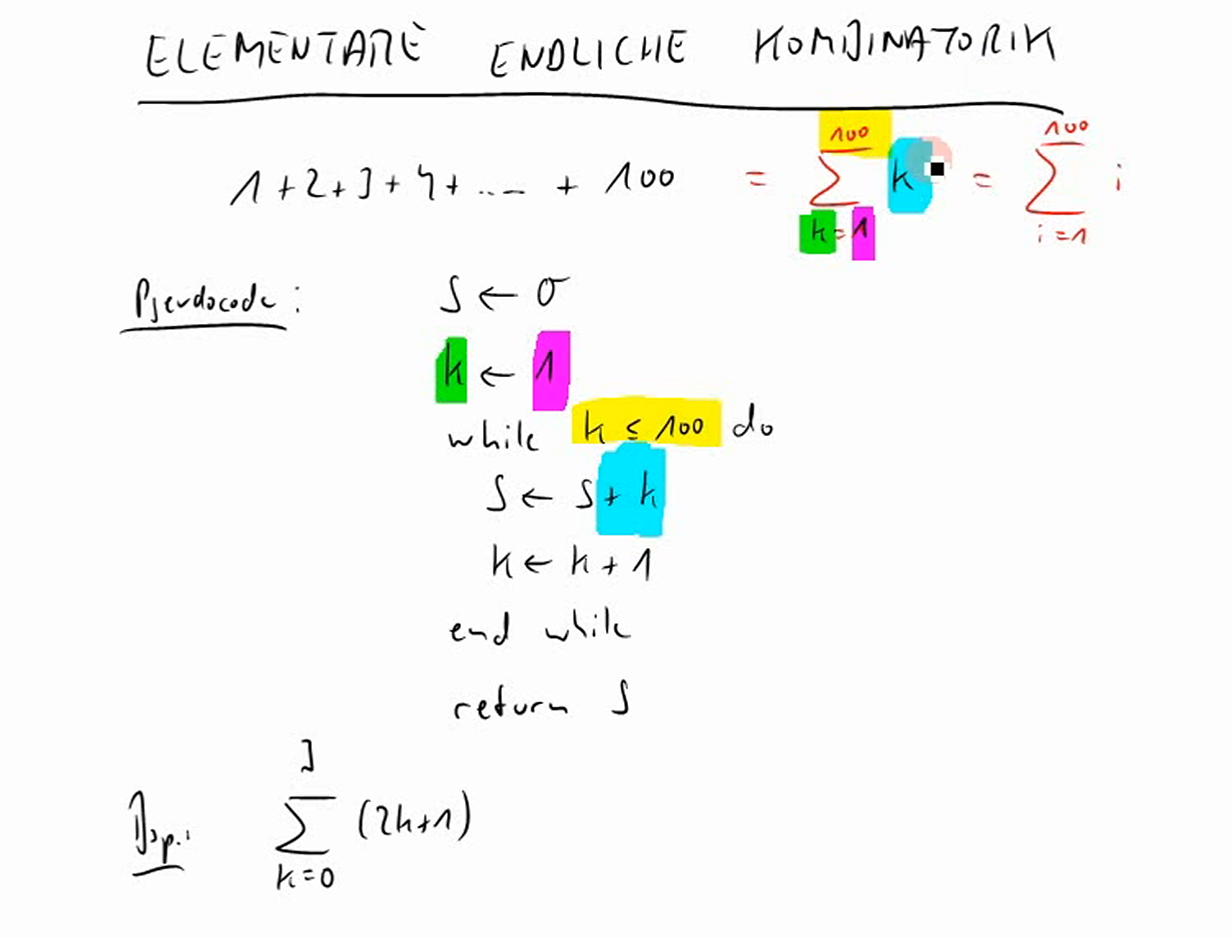 ELEMENTARE ENDLICHE KOMBINATORIK
1+2+3+4+..... + 100 = ∑_{k=1}^{100} k = ∑_{i=1}^{100} i
Pseudocode: S ← 0
k ← 1
while k ≤ 100 do
S ← S + k
k ← k + 1
end while
return S
Bsp.: ∑_{k=0}^{3} (2k+1)